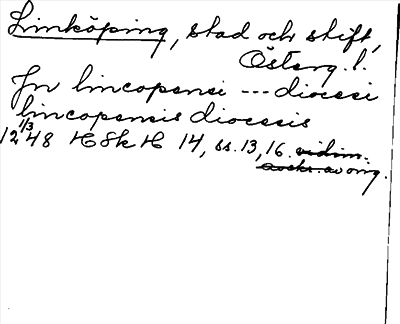 Linköping, stad och stift,
Österg. l.
In lincopensi --- diocesi
lincopensis diocesis
12 1/3 48 HSH 14, ss. 13, 16. vidim.
avskr. av orig.